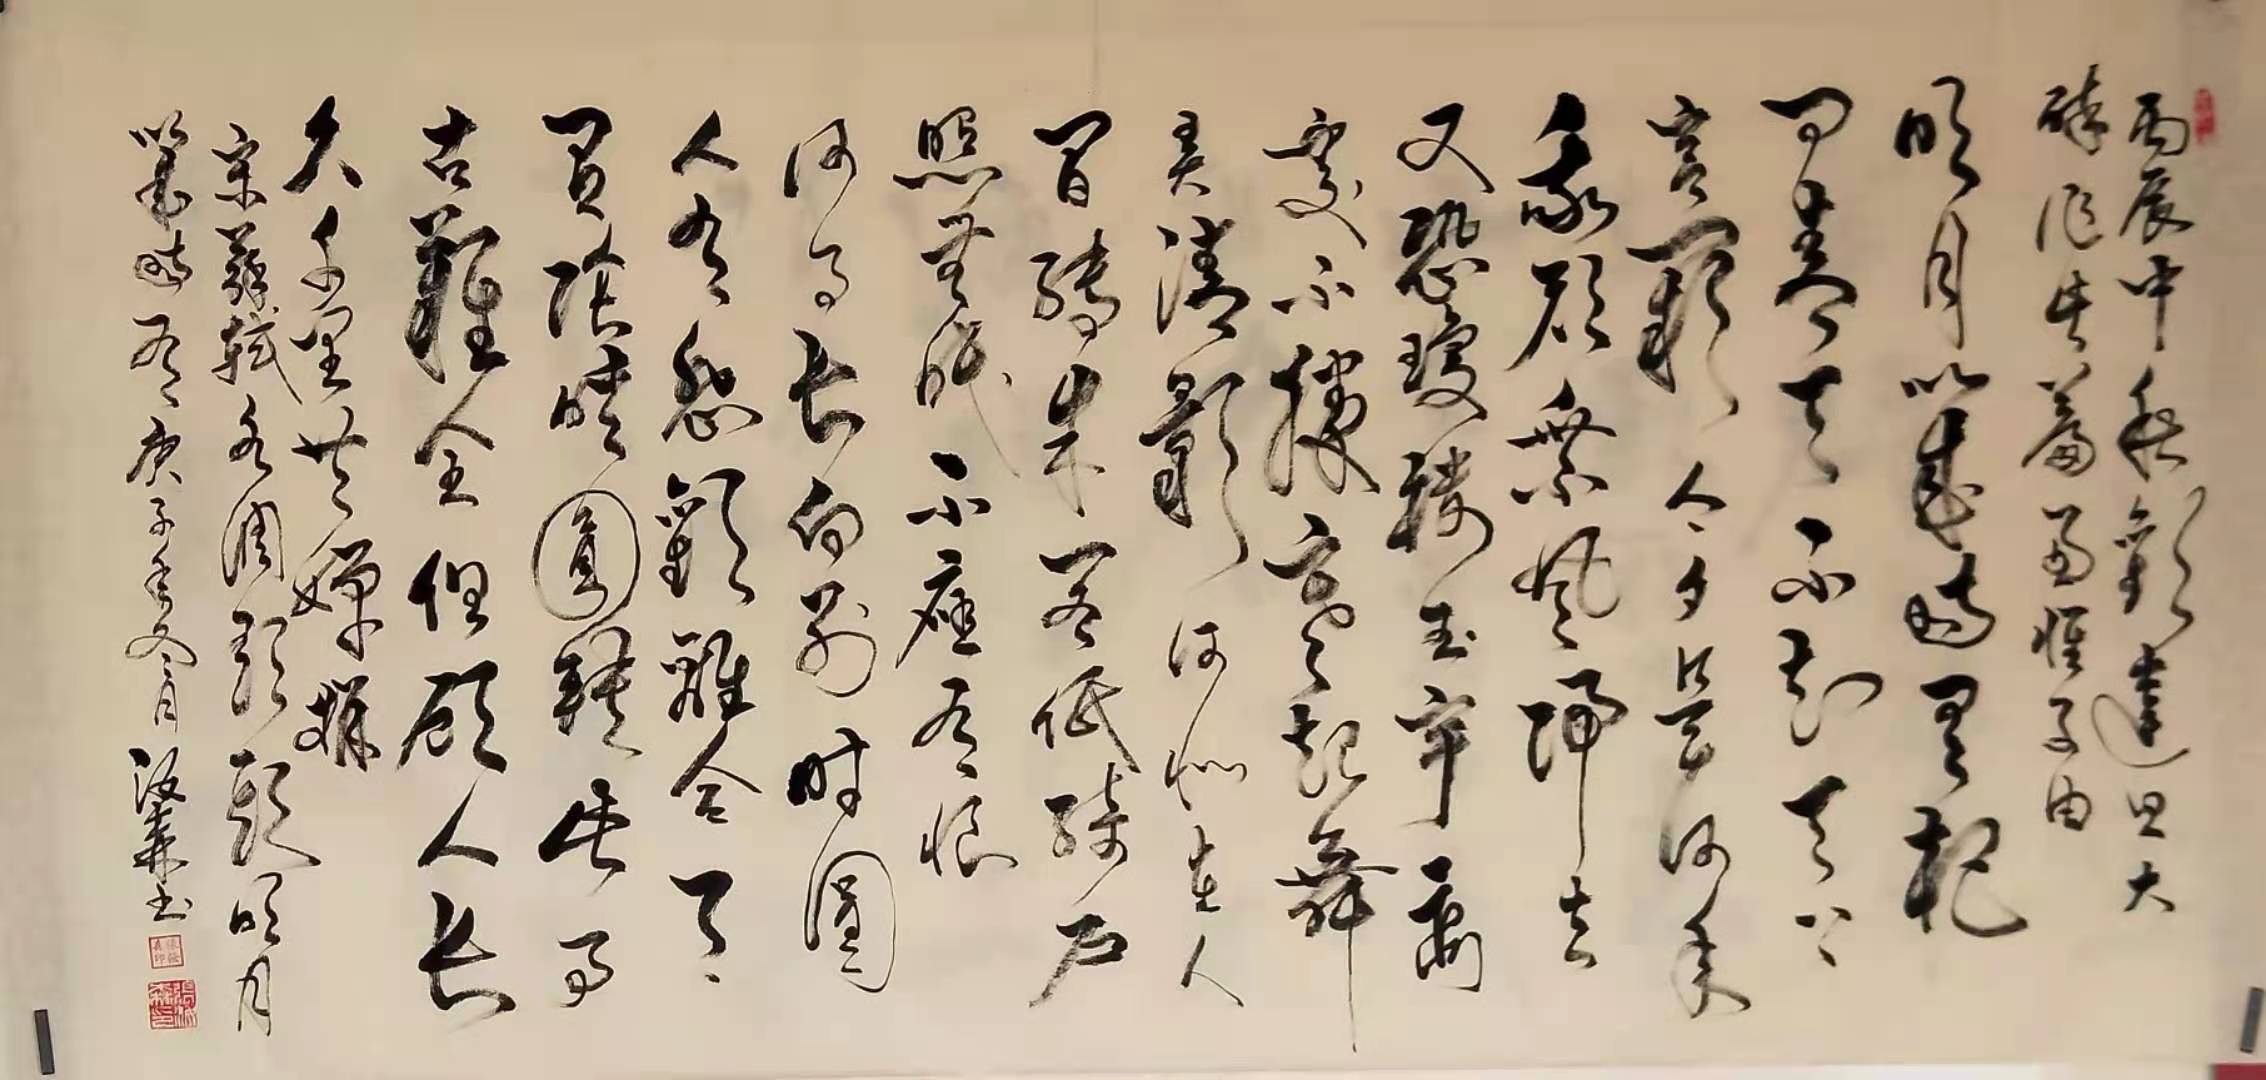 丙辰中秋歡達旦大
醉作此篇兼懷子由
明月幾時有把
問青天不知天上
宮闕今夕是何年
我欲乘風歸去
又恐瓊樓玉宇高
處不勝寒起舞
弄清影何似在人
間轉朱閣低綺戶
照無眠不應有恨
何事長向別時圓
人有悲歡離合月
有陰晴圓缺此事
古難全但願人長
久千里共嬋娟
宋蘇軾水調歌頭明月
幾時有庚子年冬月汝森书